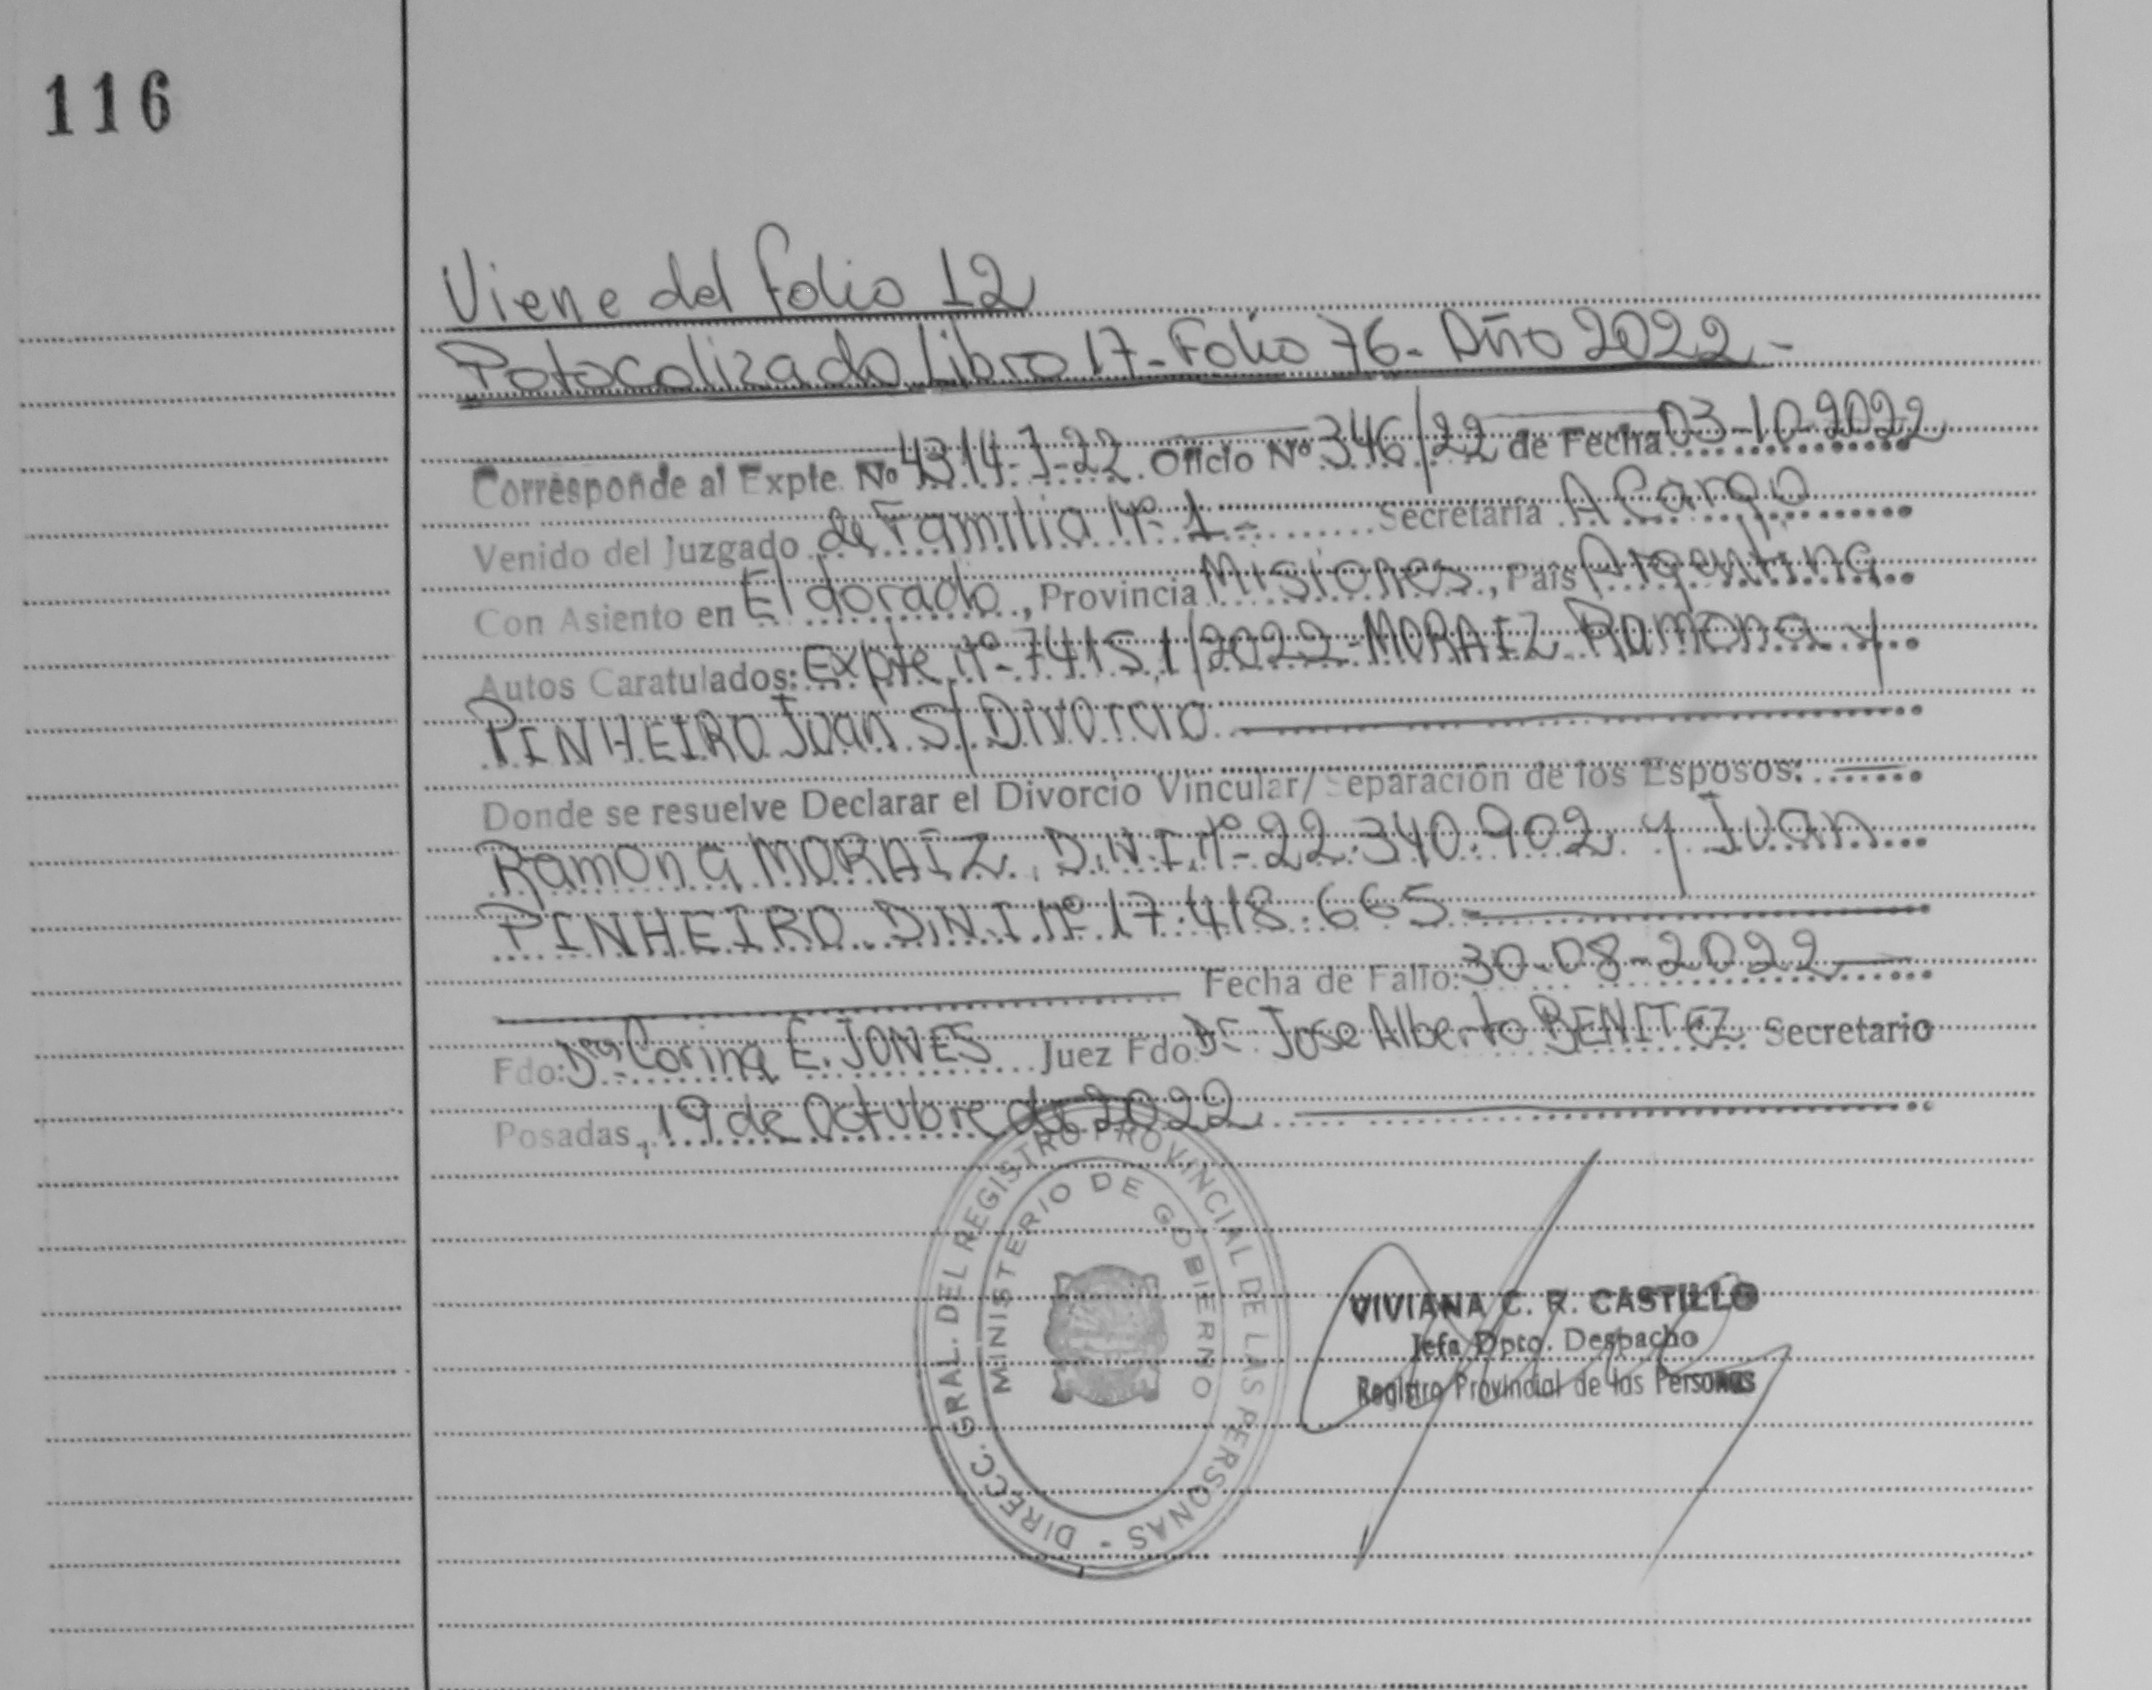 116
Viene del folio 12
Potocolizado Libro 17- Folio 76- Año 2022-
Corresponde al Expte. Nº 4314-J-22 Oficio Nº 346/22 de Fecha 03-10-2022
Venido del Juzgado de Familia Nº 1- Secretaría A Cargo
Con Asiento en Eldorado, Provincia Misiones, País Argentina
Autos Caratulados: Expte nº- 74151/2022- MORAIZ Ramona y
PINHEIRO Juan S/ Divorcio
Donde se resuelve Declarar el Divorcio Vincular/Separación de los Esposos:
Ramona MORAIZ, D.N.I. nº- 22.340.902 y Juan
PINHEIRO D.N.I nº 17.418.665
Fecha de Fallo: 30-08-2022
Fdo: Dra. Corina E. JONES Juez Fdo Dr. Jose Alberto BENITEZ Secretario
Posadas, 19 de Octubre de 2022
DIRECC. GRAL. DEL REGISTRO PROVINCIAL DE LAS PERSONAS -
MINISTERIO DE GOBIERNO
VIVIANA C. R. CASTILLO
Jefa Dpto. Despacho
Registro Provincial de las Personas